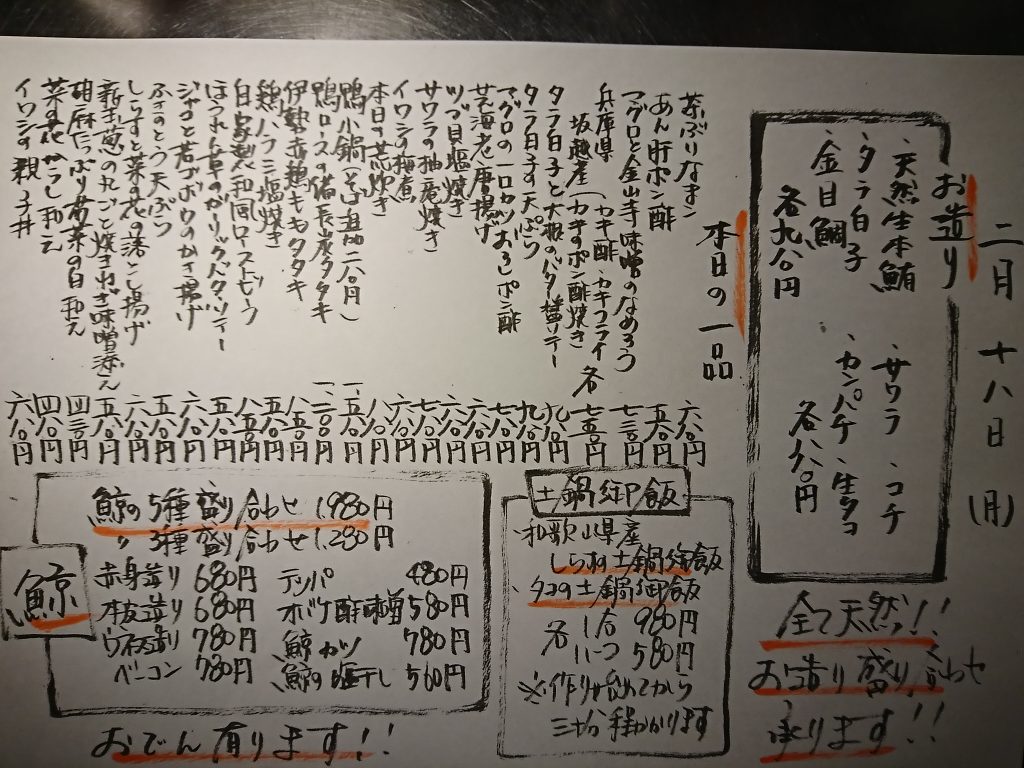 二月 十八日 (月)
お造り
・天然生本鮪
・タラ白子
・金目鯛
各九八〇円
・サワラ ・コチ
・カンパチ ・生タコ
各八八〇円
全て天然!!
お造り盛り合わせ
承ります!!
本日の一品
茶ぶりなまこ 六八〇円
あん肝ポン酢 五八〇円
マグロと金山寺味噌のなめろう 七三〇円
兵庫県
坂越産(カキ酢・カキフライ
カキのポン酢焼き) 各七五〇円
タラ白子と大根のバター醤ソテー 九八〇円
タラ白子天ぷら 九八〇円
マグロの一口カツ(おろしポン酢
芝海老唐揚げ 六八〇円
ツブ貝塩焼き
サワラの柚庵焼き
イワシの梅煮
本日の荒炊き
鴨小鍋
鴨ロースの備長炭タタキ
伊勢赤鶏ももタタキ
鶏ハラミ塩焼き
自家製和風ローストビーフ
ほうれん草のガーリックバターソテー
ジャコと若ゴボウのかき揚げ
ふきのとう天ぷら
しらすと菜の花の落とし揚げ
新玉葱の丸ごと焼きねぎ味噌添え 五八〇円
胡麻たっぷり若菜の白和え 四三〇円
菜の花からし和え 四八〇円
イワシの親子丼 六八〇円
土鍋御飯
・和歌山県産
しらす土鍋御飯
・タコの土鍋御飯
各 1合 980円
〃 ハーフ 580円
※作り始めてから
三十分程かかります
鯨
鯨の5種盛り合わせ 1,980円
〃 3種盛り合わせ 1,280円
赤身造り 680円
本皮造り 680円
ウネス造り 780円
ベーコン 780円
テッパ 480円
オバケ酢味噌 580円
鯨カツ 780円
鯨の塩干し 560円
おでん有ります!!